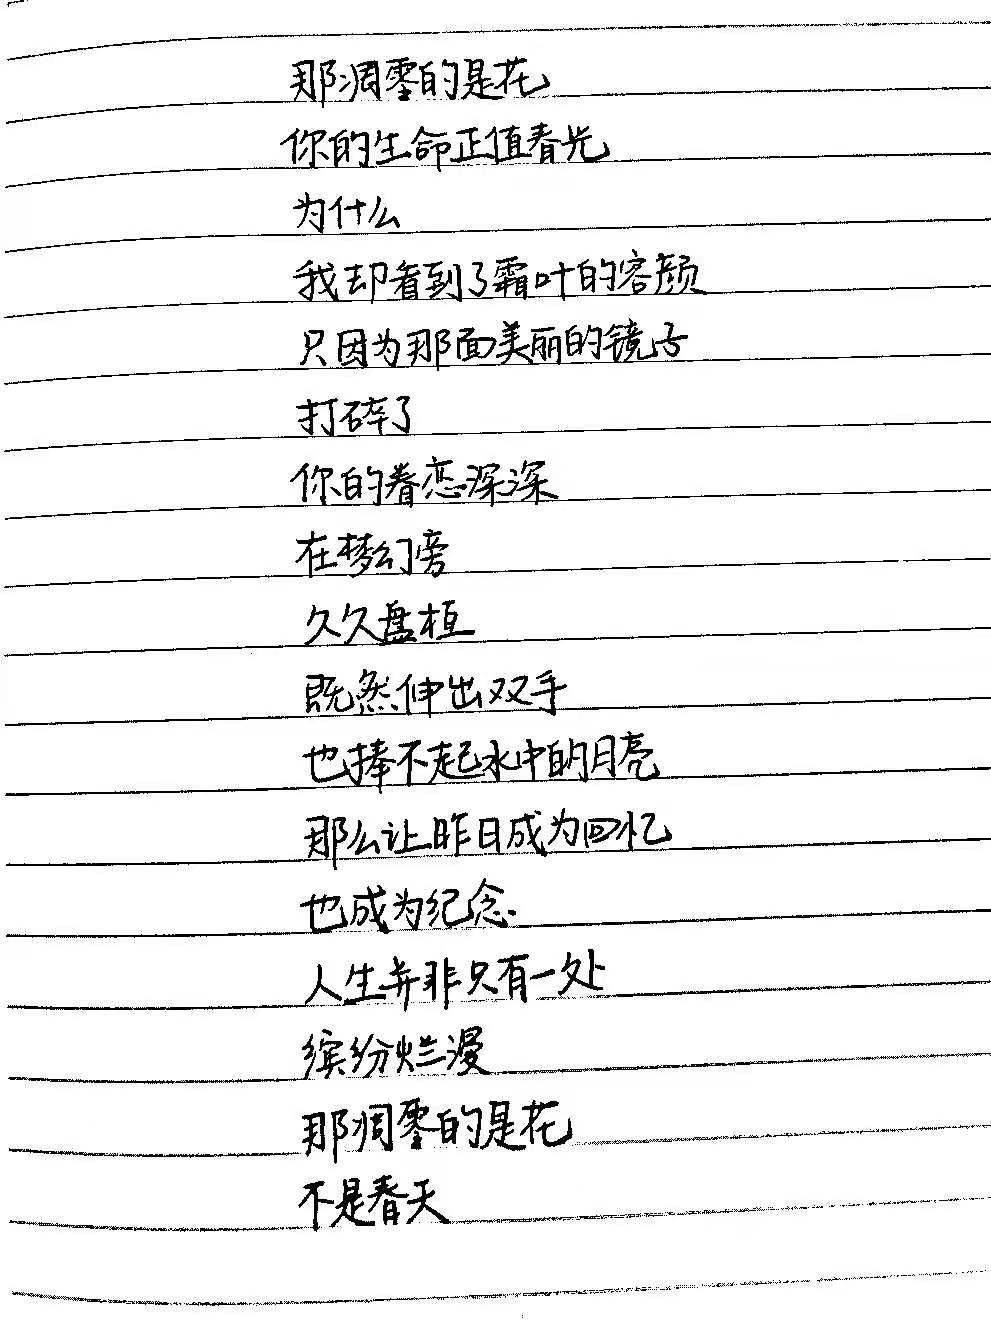 那凋零的是花
你的生命正值春光
为什么
我却看到了霜叶的容颜
只因为那面美丽的镜子
打碎了
你的眷恋深深
在梦幻旁
久久盘桓
既然伸出双手
也捧不起水中的月亮
那么让昨日成为回忆
也成为纪念.
人生并非只有一处
缤纷烂漫
那凋零的是花
不是春天